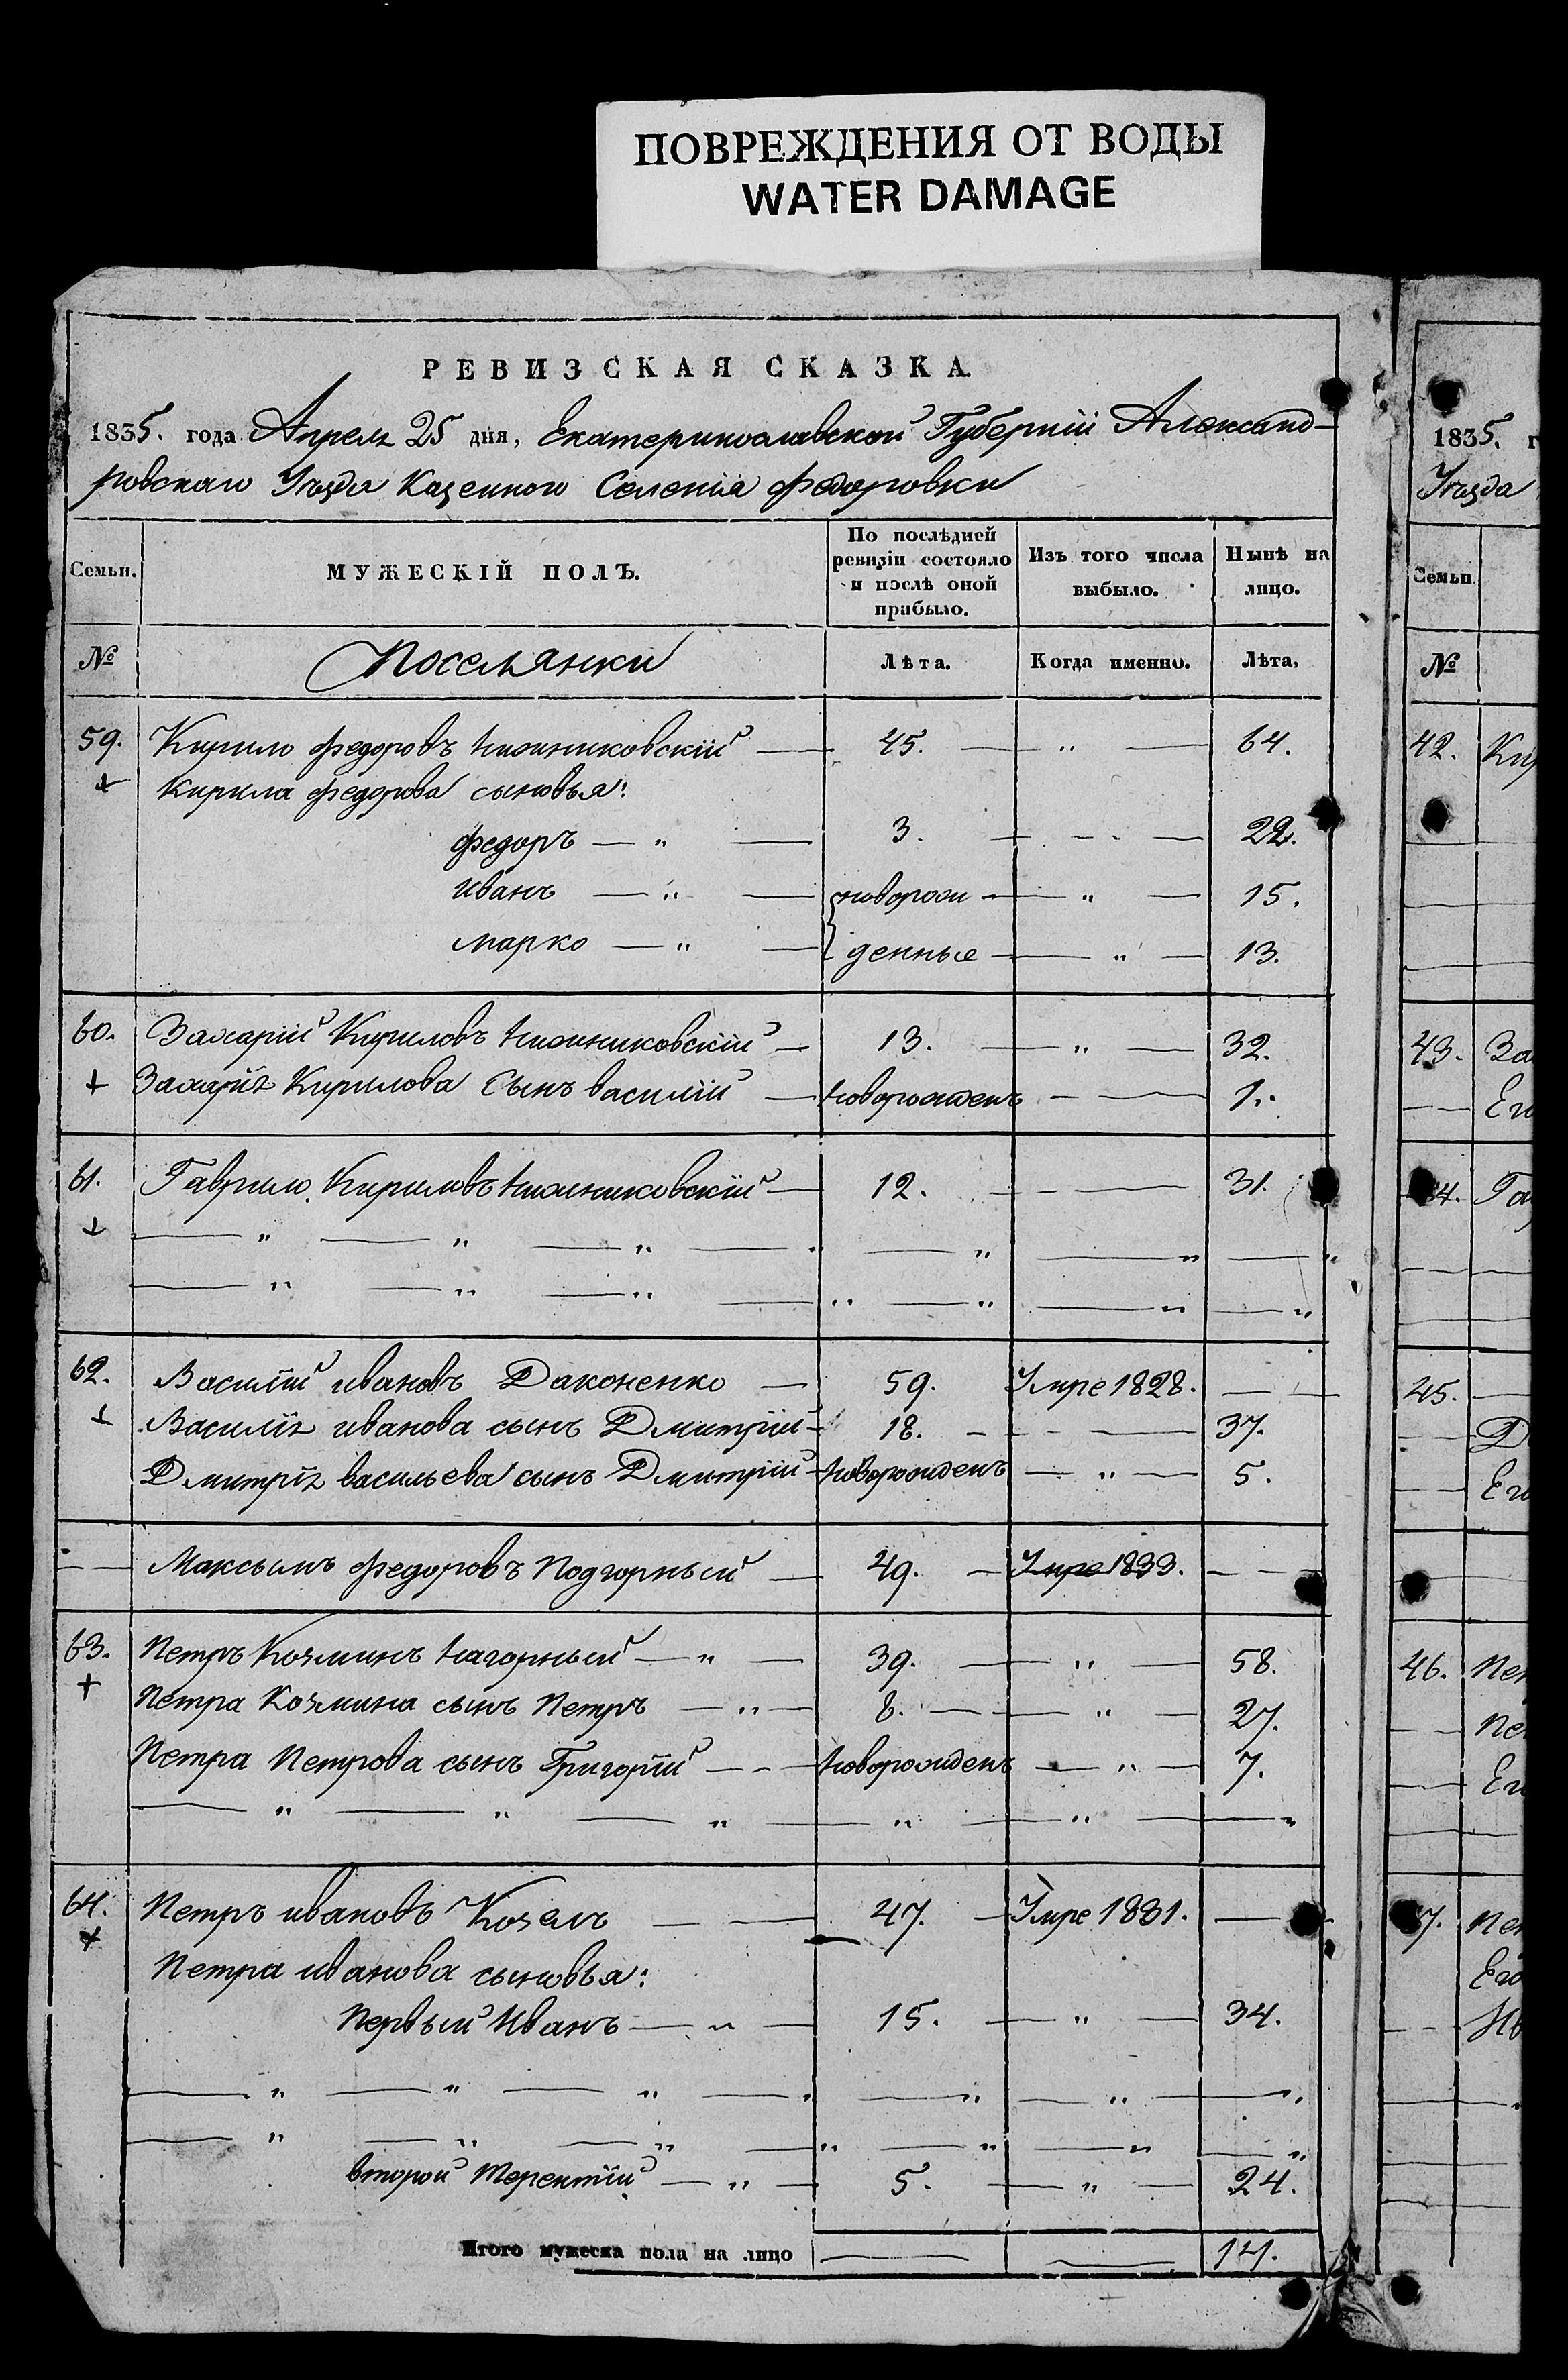 ПОВРЕЖДЕНИЯ ОТ ВОДЫ
WATER DAMAGE
РЕВИЗСКАЯ СКАЗКА
1835. года Апреля 25 дня, Екатеринославской Губернїи Александ-
ровскаго Уѣзда Казенного Селенїя Федоровки
Семьи. МУЖЕСКІЙ ПОЛЪ. По послѣдней ревизіи состояло и послѣ оной прибыло. Изъ того числа выбыло. Нынѣ на лицо.
№ Поселянки Лѣта. Когда именно. Лѣта,
59. Кирило Федоровъ 45. " 64.
Кирила Федорова сыновья:
Федоръ " 3. 22.
Иванъ " новорож " 15.
Марко " денные " 13.
60. Захарїй Кириловъ 13. " 32.
Захарїя Кирилова Сынъ Василїй новорожденъ 1.
61. Гаврило Кириловъ 12. 31.
62. Василїй Ивановъ Даконенко 59. Умре 1828.
Василїя Иванова сынъ Дмитрїй 18. 37.
Дмитрїя Васильева сынъ Дмитрїй новорожденъ " 5.
Максымъ Федоровъ Подгорный 49. Умре 1833.
63. Петръ Козминъ Нагорный " 39. " 58.
Петра Козмина сынъ Петръ " 8. " 27.
Петра Петрова сынъ Григорїй новорожденъ " 7.
64. Петръ Ивановъ Козелъ 47. Умре 1831.
Петра Иванова сыновья:
Первый Иванъ " 15. " 34.
второй Терентїй " 5. " 24.
Итого мужеска пола на лицо 14.
1835. г
Уѣзда
Семьи
№
42. Ки
43. За
Ег
Га
45.
Д
Ег
46. Пе
Пе
Ег
7. Пе
Его
Ив